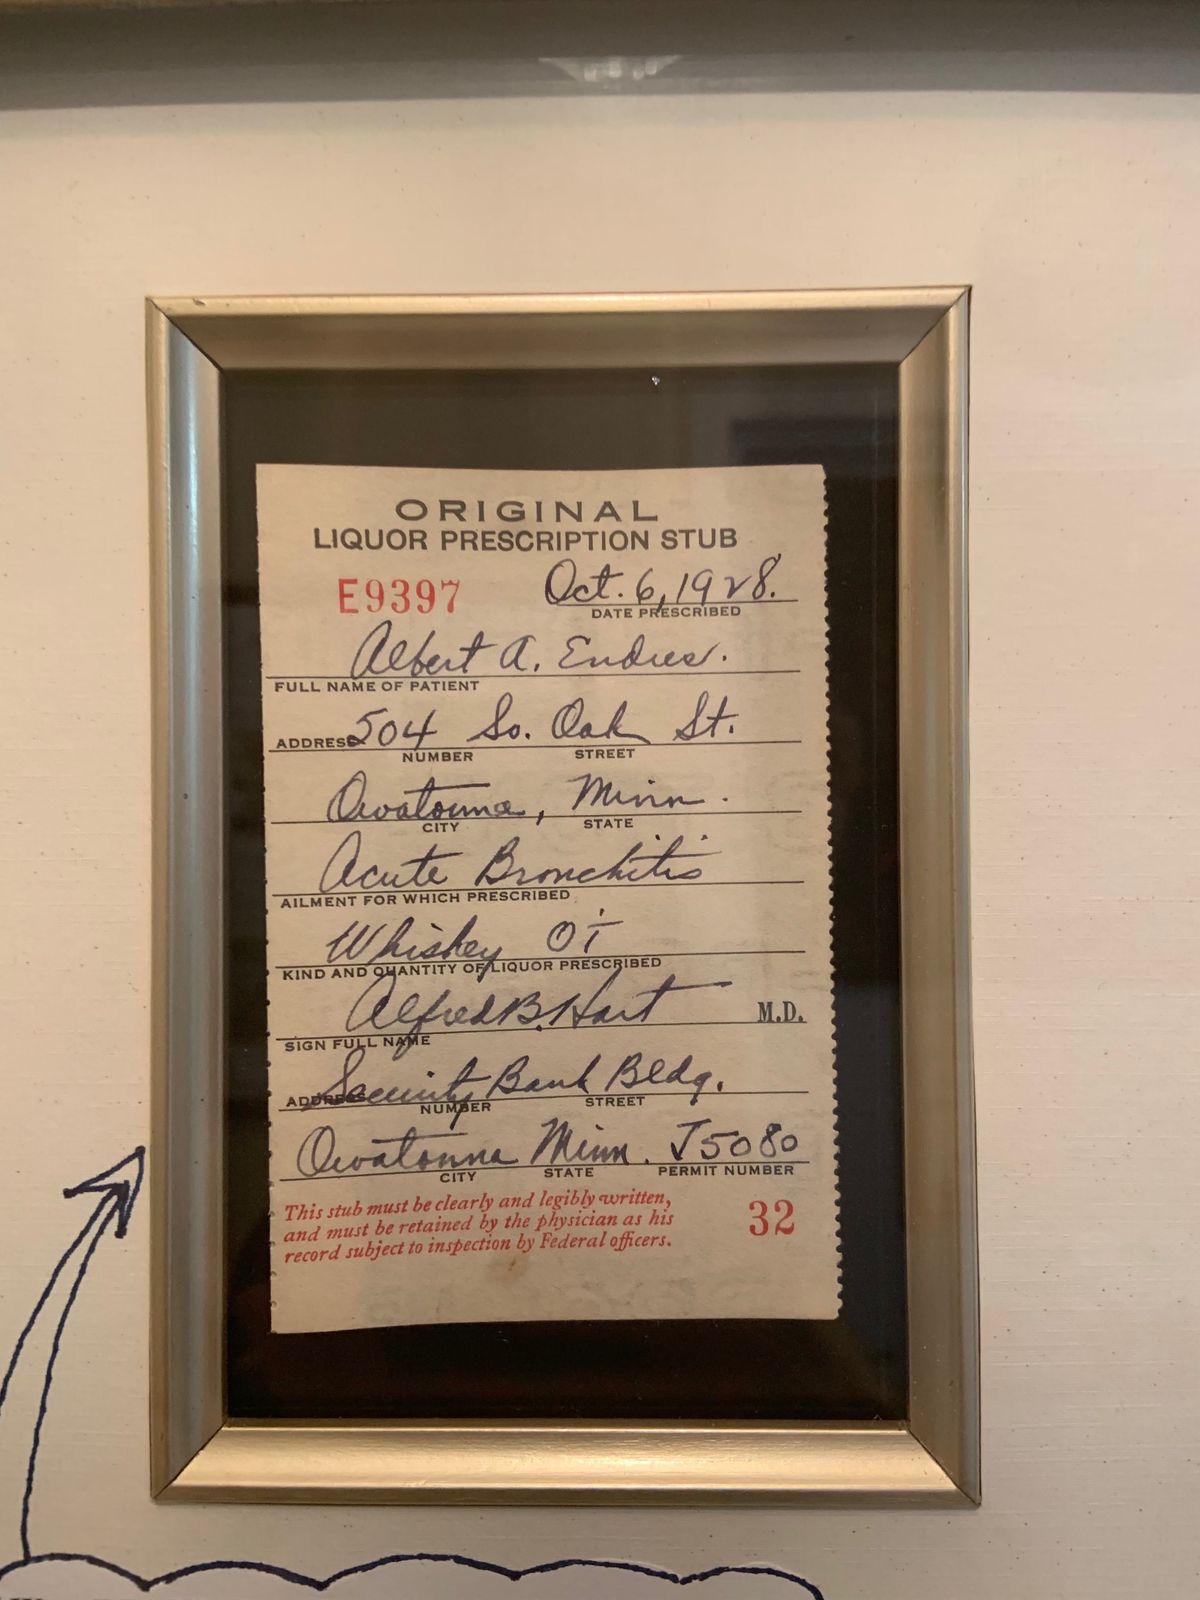 ORIGINAL
LIQUOR PRESCRIPTION STUB
E9397 Oct. 6, 1928.
DATE PRESCRIBED
Albert A. Endres.
FULL NAME OF PATIENT
ADDRESS 504 So. Oak St.
NUMBER STREET
Owatonna, Minn.
CITY STATE
Acute Bronchitis
AILMENT FOR WHICH PRESCRIBED
Whiskey
KIND AND QUANTITY OF LIQUOR PRESCRIBED
Alfred B. Hart M.D.
SIGN FULL NAME
ADDRESS Security Bank Bldg.
NUMBER STREET
Owatonna Minn. J5080
CITY STATE PERMIT NUMBER
This stub must be clearly and legibly written,
and must be retained by the physician as his
record subject to inspection by Federal officers.
32